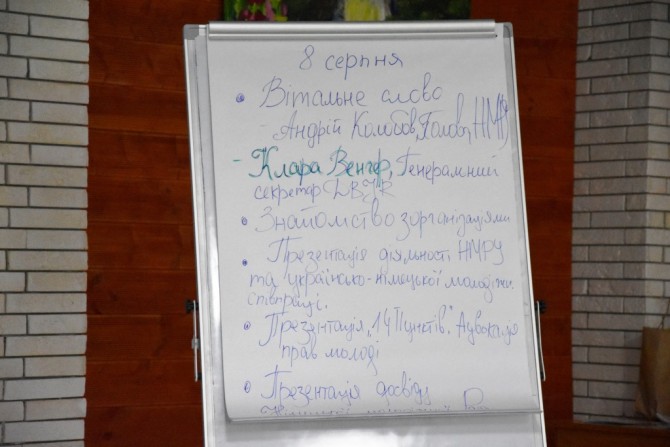 8 серпня
• Вітальне слово
- Андрій Колобов, Голова НМРУ
- Клара Венгер, Генеральний
секретар DBJR
• Знайомство з організаціями
• Презентація діяльності НМРУ
та українсько-німецької молодіжн.
співпраці.
• Презентація "14 Пунктів". Адвокація
прав молоді
• Презентація досвіду